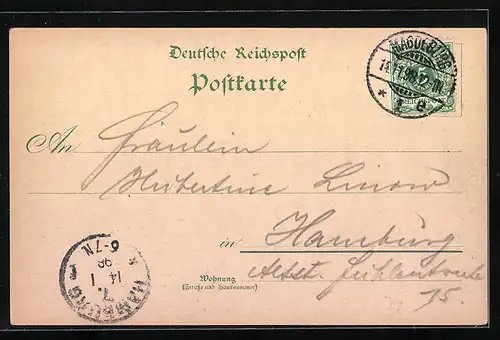 Deutsche Reichspost
Postkarte
MAGDEBURG
14.1.98.12-1N.
* 1 e
An Fräulein
Hubertine Linow
in Hamburg
Wohnung
(Straße und Hausnummer)
15.
HAMBURG 1
7.
14 1
98
6-7N